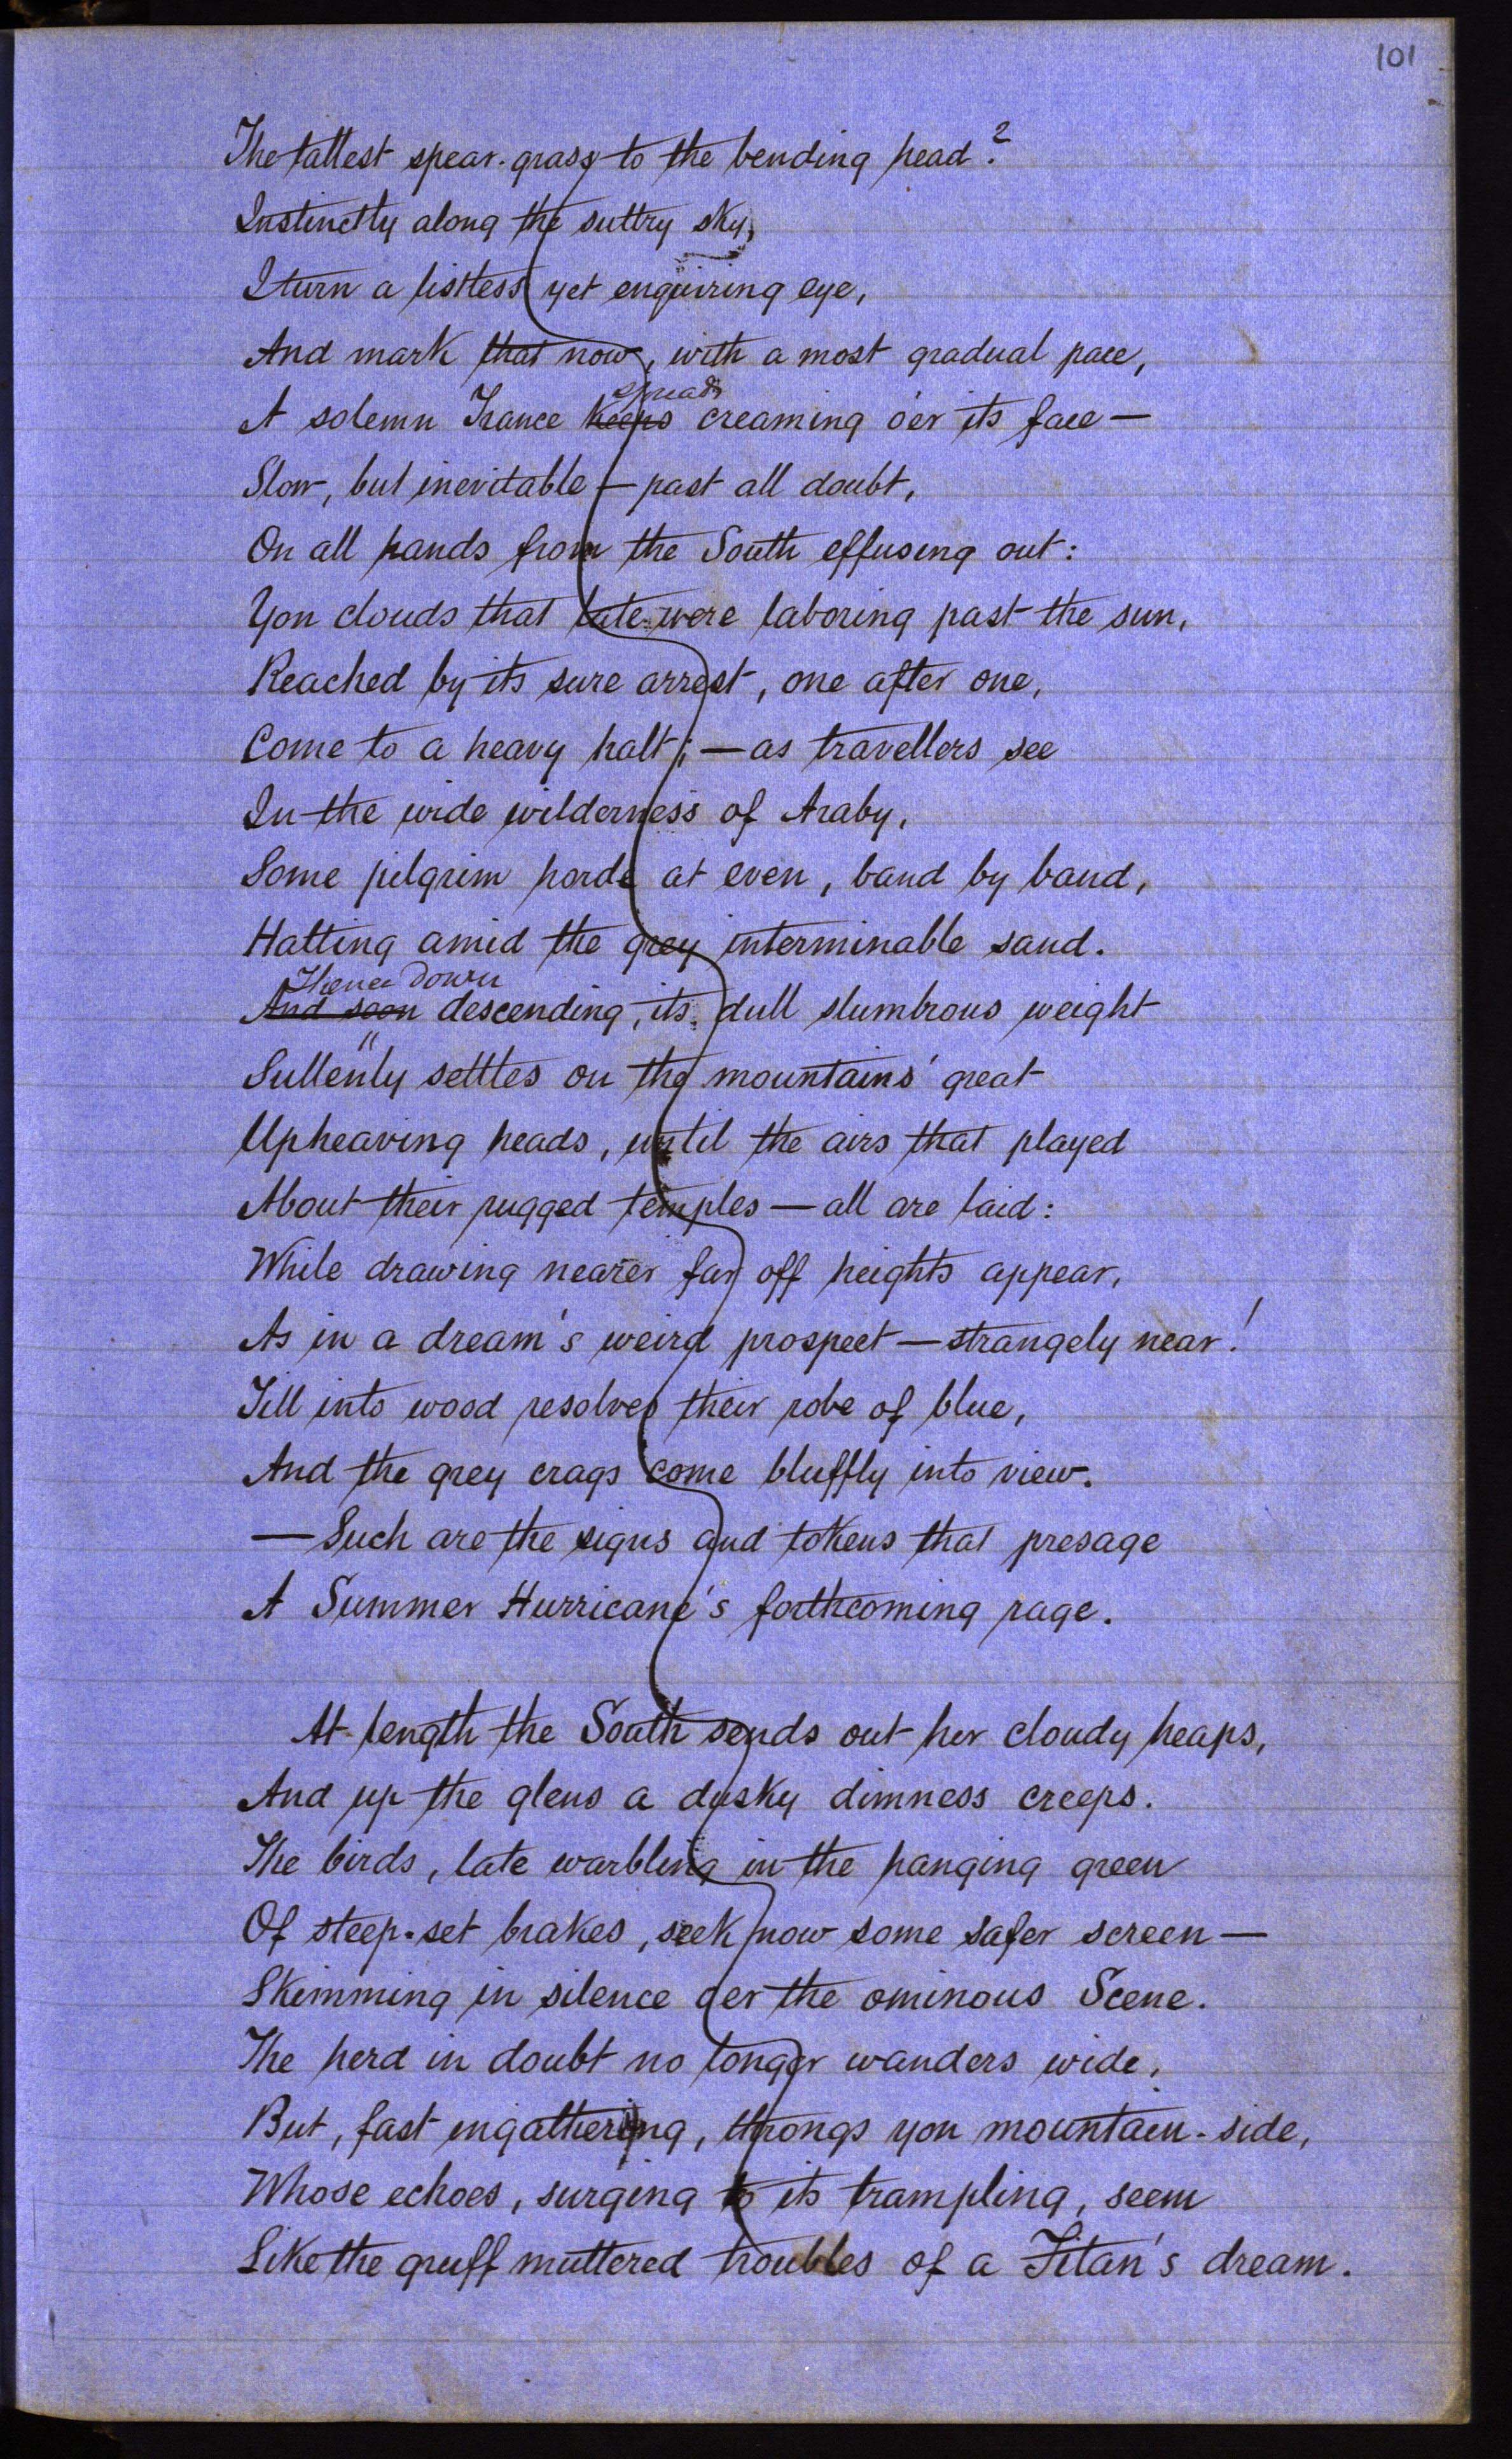 101
The tallest spear-grass to the bending head?
Instinctly along the sultry sky,
I turn a listless yet enquiring eye,
And mark that now, with a most gradual pace,
spreads
A solemn Trance keeps creaming o'er its face—
Slow, but inevitable—past all doubt,
On all hands from the South effusing out:
Yon clouds that late were laboring past the sun,
Reached by its sure arrest, one after one,
Come to a heavy halt;—as travellers see
In the wide wilderness of Araby,
Some pilgrim horde at even, band by band,
Halting amid the grey interminable sand.
Thence down
And soon descending, its dull slumbrous weight
Sullenly settles on the mountains' great
Upheaving heads, until the airs that played
About their rugged temples—all are laid:
While drawing nearer far off heights appear,
As in a dream's weird prospect—strangely near!
Till into wood resolves their robe of blue,
And the grey crags come bluffly into view.
—Such are the signs and tokens that presage
A Summer Hurricane's forthcoming rage.
At length the South sends out her cloudy heaps,
And up the glens a dusky dimness creeps.
The birds, late warbling in the hanging green
Of steep-set brakes, seek now some safer screen—
Skimming in silence o'er the ominous Scene.
The herd in doubt no longer wanders wide,
But, fast ingathering, throngs yon mountain-side,
Whose echoes, surging to its trampling, seem
Like the gruff muttered troubles of a Titan's dream.